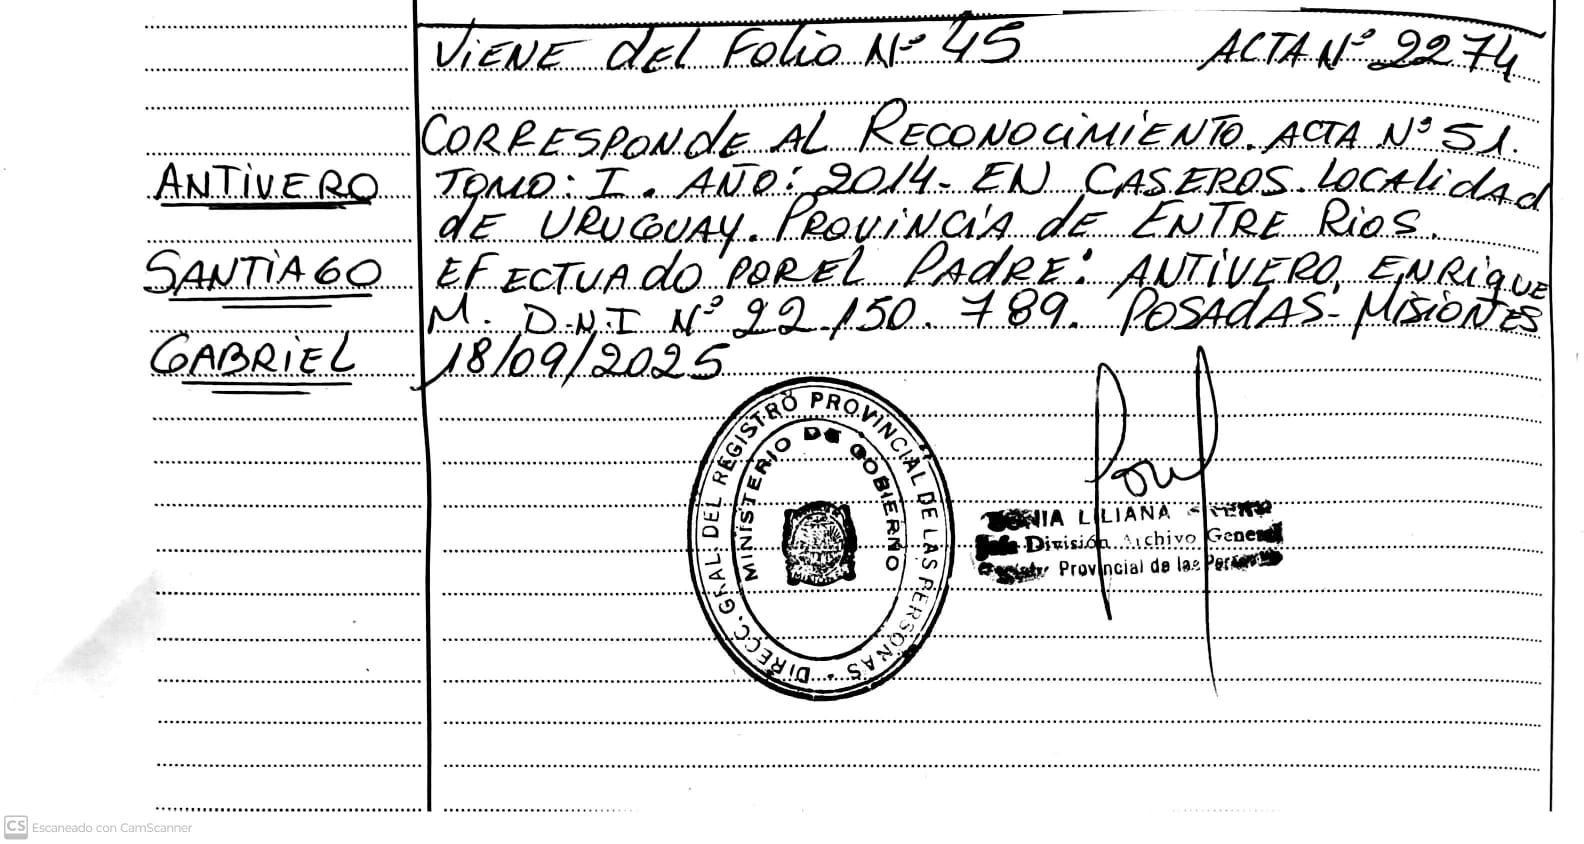 VIENE DEL FOLIO Nº 45 ACTA Nº 2274
CORRESPONDE AL RECONOCIMIENTO. ACTA Nº 51.
ANTIVERO
TOMO: I. AÑO: 2014. EN CASEROS. LOCALIDAD
DE URUGUAY. PROVINCIA DE ENTRE RIOS.
SANTIAGO
EFECTUADO POR EL PADRE: ANTIVERO, ENRIQUE
M. D.N.I Nº 22.150.789. POSADAS- MISIONES
GABRIEL
18/09/2025
DIRECC. GRAL. DEL REGISTRO PROVINCIAL DE LAS PERSONAS
MINISTERIO DE GOBIERNO
LILIANA
División Archivo General
Provincial de las Personas
CS Escaneado con CamScanner